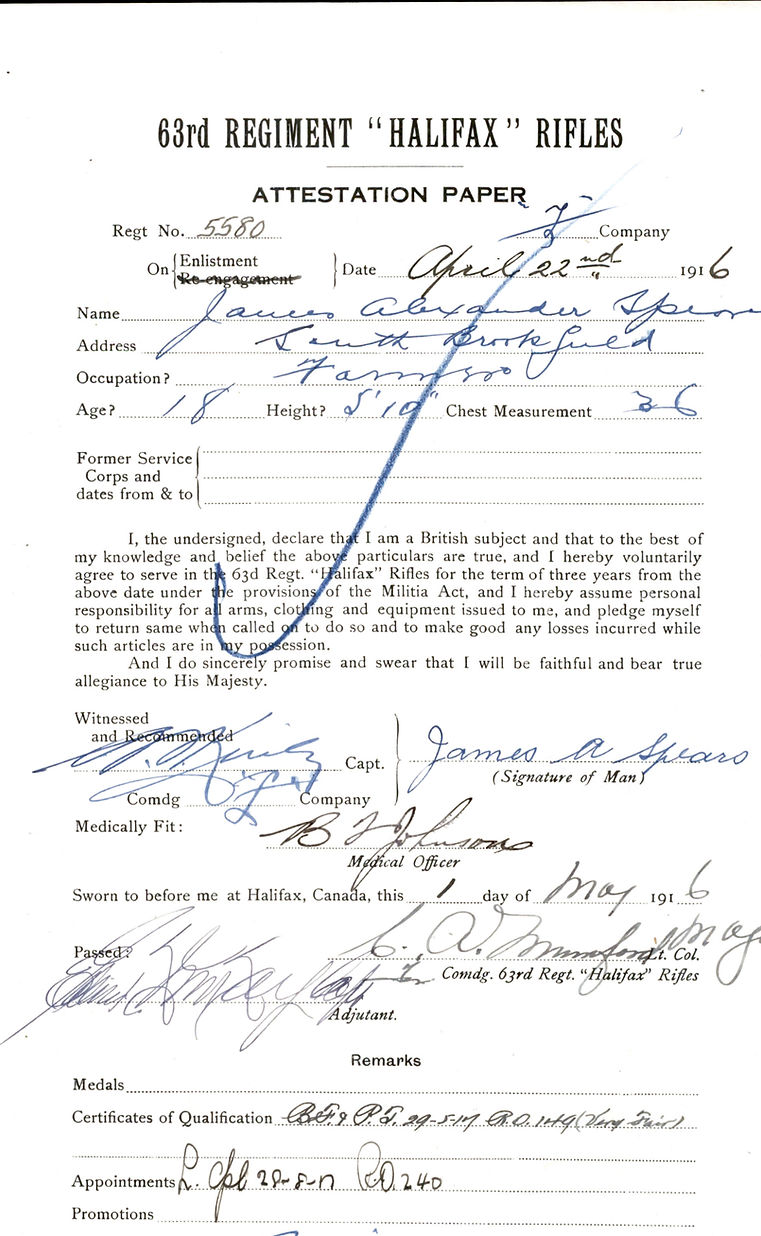 63rd REGIMENT "HALIFAX" RIFLES
ATTESTATION PAPER
Regt No. 5580 Company
On Enlistment Date April 22nd 1916
Re-engagement
Name James Alexander Spears
Address South Brookfield
Occupation? Farmer
Age? 18 Height? 5'10" Chest Measurement 36
Former Service
Corps and
dates from & to
I, the undersigned, declare that I am a British subject and that to the best of
my knowledge and belief the above particulars are true, and I hereby voluntarily
agree to serve in the 63d Regt. "Halifax" Rifles for the term of three years from the
above date under the provisions of the Militia Act, and I hereby assume personal
responsibility for all arms, clothing and equipment issued to me, and pledge myself
to return same when called on to do so and to make good any losses incurred while
such articles are in my possession.
And I do sincerely promise and swear that I will be faithful and bear true
allegiance to His Majesty.
Witnessed
and Recommended
Capt. James A Spears
(Signature of Man)
Comdg Company
Medically Fit: B Johnson
Medical Officer
Sworn to before me at Halifax, Canada, this 1 day of May 1916
Passed? C. A. Mumford Maj Lt. Col.
Comdg. 63rd Regt. "Halifax" Rifles
Adjutant.
Remarks
Medals
Certificates of Qualification B.F. & P.T. 29-5-17 R.O. 149 (Very Fair)
Appointments L. Cpl 28-8-17 R.O. 240
Promotions